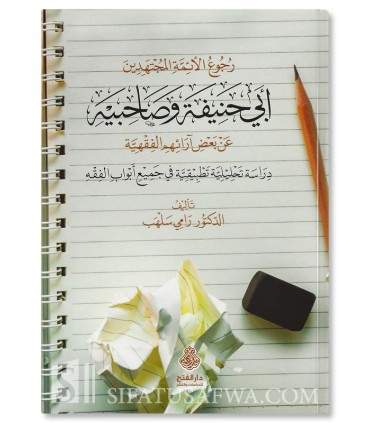 رُجُوعُ الأَئِمَّةِ المُجْتَهِدِينَ
أَبِي حَنِيفَةَ وَصَاحِبَيْهِ
عَنْ بَعْضِ آرَائِهِم الفِقْهِيَّة
دِرَاسَة تَحْلِيلِيَّة تَطْبِيقِيَّة فِي جَمِيعِ أَبْوَابِ الفِقْه
تَأْلِيفُ
الدُّكْتُور رَامِي سَلْهَب
دار الفتح
SIFATUSAFWA.COM